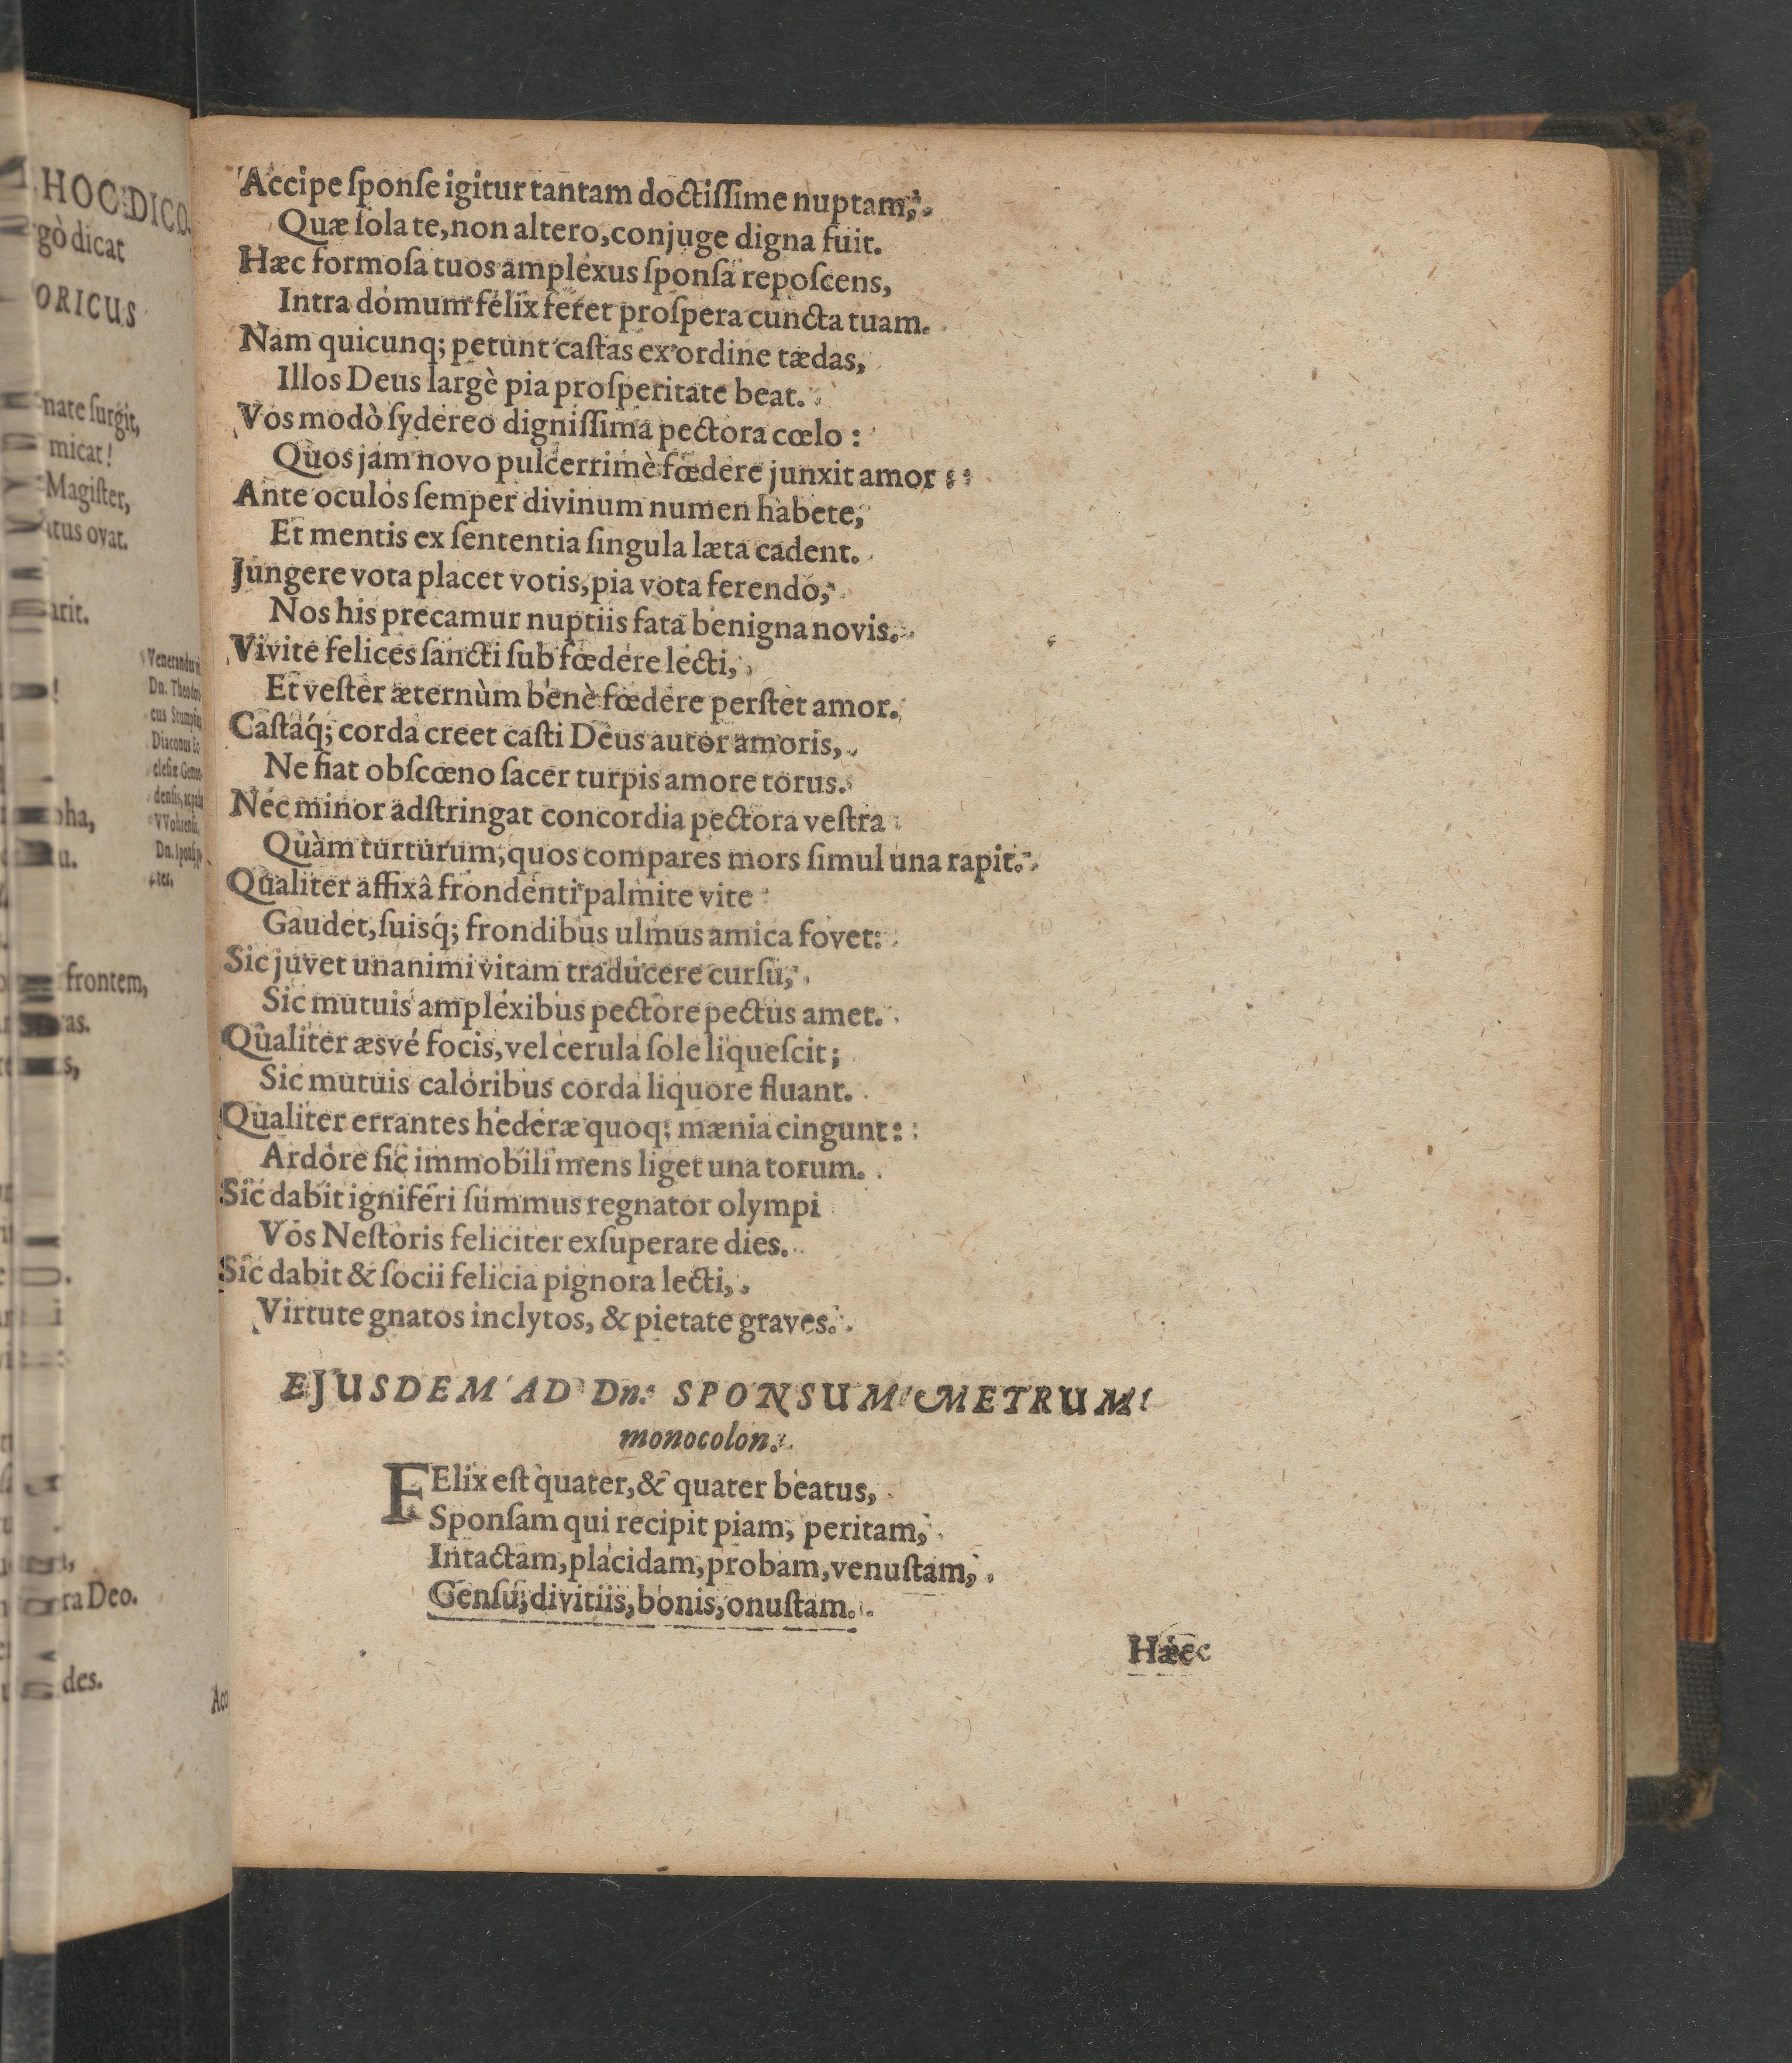 HOC DICO.
gò dicat
ORICUS
nate ſurgit,
micat!
Magiſter,
atus ovat.
arit.
Dn. Theodo-
Diaconus Ec-
pha,
u.
frontem,
as.
s,
ra Deo.
des.
Acci
Accipe ſponſe igitur tantam doctiſſime nuptam,
Quæ ſola te, non altero, conjuge digna fuit.
Hæc formoſa tuos amplexus ſponſa repoſcens,
Intra domum felix feret proſpera cuncta tuam.
Nam quicunq; petunt caſtas ex ordine tædas,
Illos Deus largè pia proſperitate beat.
Vos modò ſydereo digniſſima pectora cœlo:
Quos jam novo pulcerrimè fœdere junxit amor:
Ante oculos ſemper divinum numen habete,
Et mentis ex ſententia ſingula læta cadent.
Jungere vota placet votis, pia vota ferendo,
Nos his precamur nuptiis fata benigna novis.
Vivite felices ſancti ſub fœdere lecti,
Et veſter æternùm benè fœdere perſtet amor.
Caſtaq́; corda creet caſti Deus autor amoris,
Ne fiat obſcœno ſacer turpis amore torus.
Nec minor adſtringat concordia pectora veſtra
Quàm turturum, quos compares mors ſimul una rapit.
Qualiter affixâ frondenti palmite vite
Gaudet, ſuisq́; frondibus ulmus amica fovet:
Sic juvet unanimi vitam traducere curſu,
Sic mutuis amplexibus pectore pectus amet.
Qualiter æsvé focis, vel cerula ſole liqueſcit;
Sic mutuis caloribus corda liquore fluant.
Qualiter errantes hederæ quoq; mænia cingunt:
Ardore ſic immobili mens liget una torum.
Sic dabit igniferi ſummus regnator olympi
Vos Neſtoris feliciter exſuperare dies.
Sic dabit & ſocii felicia pignora lecti,
Virtute gnatos inclytos, & pietate graves.
EJUSDEM AD Dn. SPONSUM METRUM
monocolon.
FElix eſt quater, & quater beatus,
Sponſam qui recipit piam, peritam,
Intactam, placidam, probam, venuſtam,
Genſu, divitiis, bonis, onuſtam.
Hæc